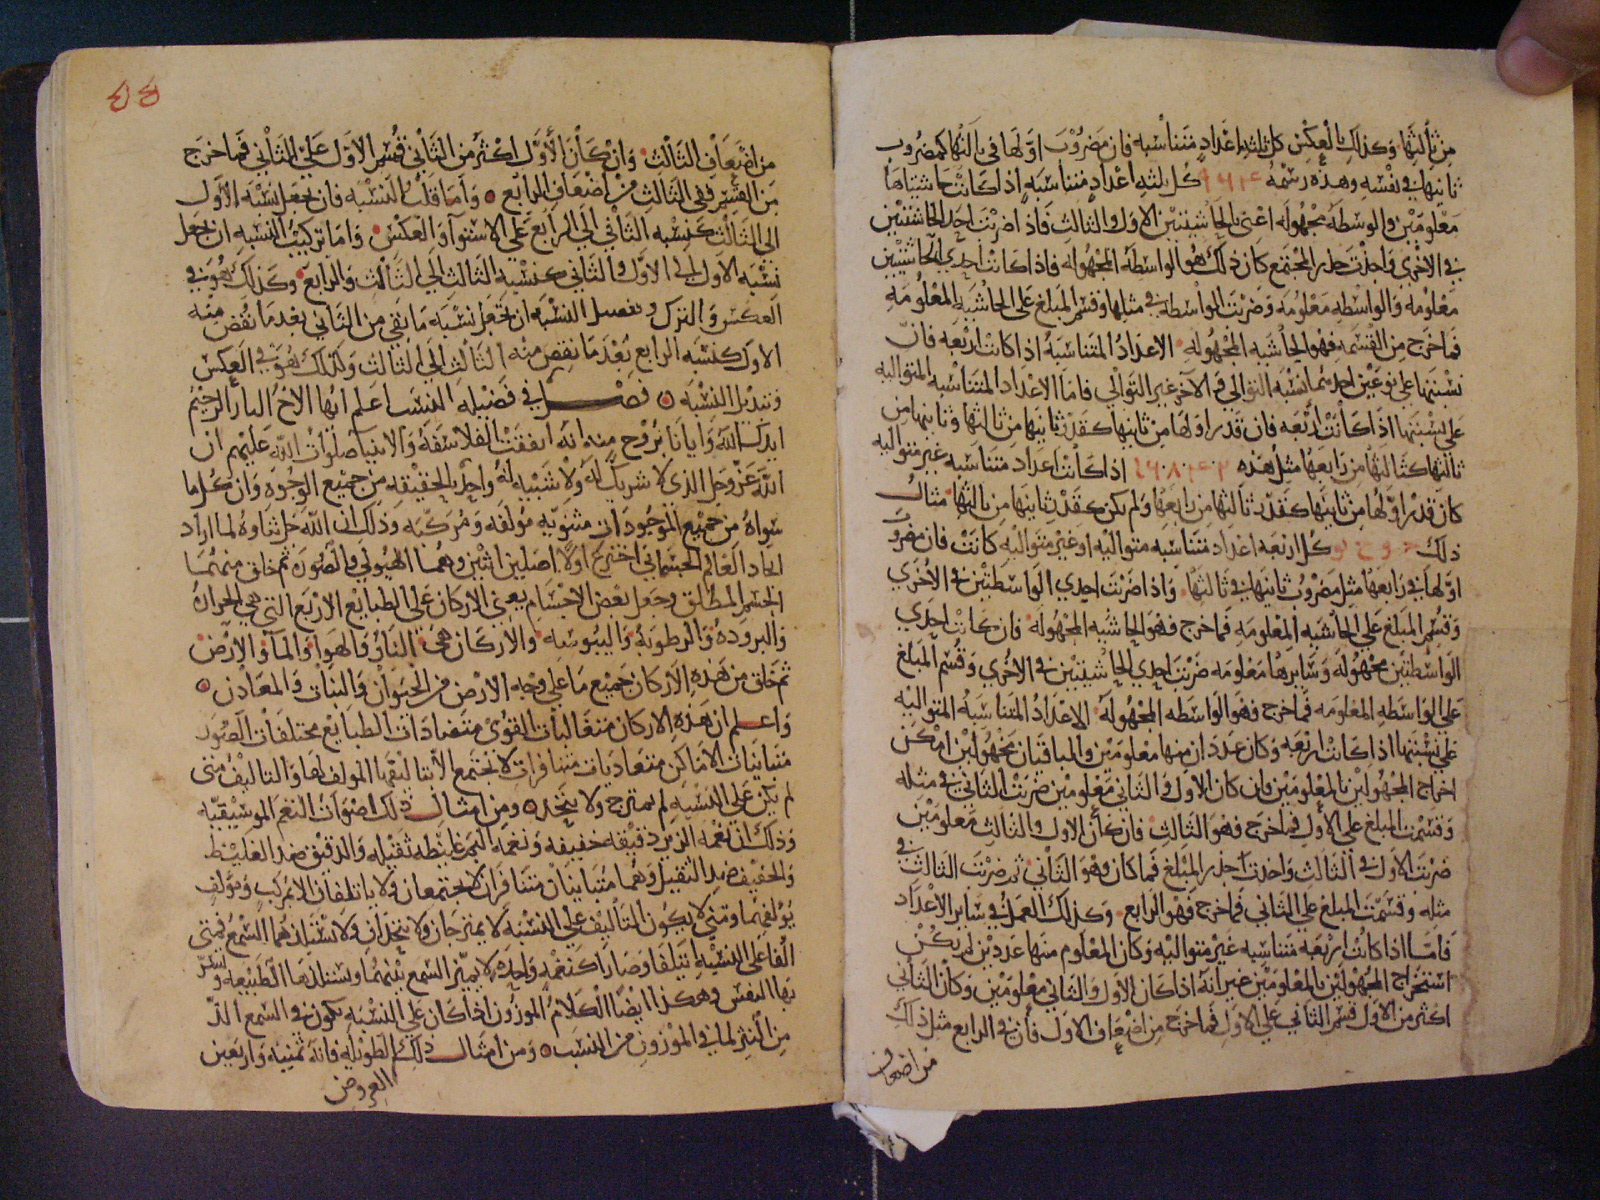 من ثالثها وكذلك بالعكس كل ثلثه اعداد متناسبه فان مضروب اولها في ثالثها كمضروب
ثانيها في نفسه وهذه رسمه ٩ ٦ ٤ كل ثلثه اعداد متناسبه اذا كانت حاشيتاها
معلومتين والوسطه مجهوله اعنى الحاشيتين الاول والثالث فاذا ضربت احد الحاشيتين
في الاخرى واخذت جذر المجتمع كان ذلك هو الواسطه المجهوله فاذا كانت احدي الحاشيتين
معلومه والواسطه معلومه وضربت الواسطه في مثلها وقسم المبلغ على الحاشيه المعلومه
فما خرج من القسمه فهو الحاشيه المجهوله الاعداد المتناسبه اذا كانت اربعه فان
نسبتها على نوعين احدهما نسبه التوالي والآخر غير التوالي فاما الاعداد المتناسبه المتواليه
على نسبتها اذا كانت اربعه فان قدر اولها من ثانيها كقدر ثانيها من ثالثها وثانيها من
ثالثها كثالثها من رابعها مثل هذه ٢ ٤ ٨ ١٦ اذا كانت اعداد متناسبه غير متواليه
كان قدر اولها من ثانيها كقدر ثالثها من رابعها ولم يكن كقدر ثانيها من ثالثها مثال
ذلك كل اربعه اعداد متناسبه متواليه او غير متواليه كانت فان مضروب
اولها في رابعها مثل مضروب ثانيها في ثالثها واذا ضربت احدي الواسطتين في الاخرى
وقسم المبلغ على الحاشيه المعلومه فما خرج فهو الحاشيه المجهوله فان كانت احدي
الواسطتين مجهوله وسايرها معلومه ضربت احدي الحاشيتين في الاخرى وقسم المبلغ
على الواسطه المعلومه فما خرج فهو الواسطه المجهوله الاعداد المتناسبه المتواليه
على نسبتها اذا كانت اربعه وكان عددان منها معلومين والباقيان مجهولين امكن
اخراج المجهولين بالمعلومين فان كان الاول والثاني معلومين ضربت الثاني في مثله
وقسمت المبلغ على الاول فما خرج فهو الثالث فان كان الاول والثالث معلومين
ضربت الاول في الثالث واخذت جذر المبلغ فما كان فهو الثاني ثم ضربت الثالث في
مثله وقسمت المبلغ على الثاني فما خرج فهو الرابع وكذلك العمل في ساير الاعداد
فاما اذا كانت اربعه متناسبه غير متواليه وكان المعلوم منها عددين لم يكن
استخراج المجهولين بالمعلومين غير انه اذا كان الاول والثاني معلومين وكان الثاني
اكثر من الاول قسم الثاني على الاول فما خرج من اضعاف الاول فان في الرابع مثل ذلك
من اضعاف
من اضعاف الثالث وان كان الأول اكثر من الثاني قسم الاول على الثاني فما خرج
من القسم ففي الثالث من اضعاف الرابع واما قلب النسبه فان يجعل نسبه الاول
الى الثالث كنسبه الثاني الى الرابع على الاستوآ والعكس واما تركيب النسبه ان يجعل
نسبه الاول الى الاول والثاني كنسبه الثالث الى الثالث والرابع وكذلك هو في
العكس والترك وتفصيل النسبه ان يجعل نسبه ما بقى من الثاني بعد ما نقص منه
الاول كنسبه الرابع بعد ما نقص منه الثالث الى الثالث وكذلك هو في العكس
وتبديل النسبه فصل في فضيله النسب اعلم ايها الاخ البار الرحيم
ايدك الله وايانا بروح منه انه اتفقت الفلاسفه والانبيا صلوات الله عليهم ان
الله عز وجل الذى لا شريك له ولا شبيه له واحد بالحقيقه من جميع الوجوه وان كل ما
سواه من جميع الموجودات مثنويه مولفه ومركبه وذلك ان الله جل ثناوه لما اراد
ايجاد العالم الجسماني اخترع اولا اصلين اثنين وهما الهيولى والصوره ثم خلق منهما
الجسم المطلق وجعل بعض الاجسام يعني الاركان على الطبايع الاربع التي هي الحراره
والبروده والرطوبه واليبوسه والاركان هى النار والهوا والمآ والارض
ثم خلق من هذه الاركان جميع ما على وجه الارض من الحيوان والنبات والمعادن
واعلم ان هذه الاركان متغالبات القوى متضادات الطبايع مختلفات الصور
متباينات الاماكن متعاديات متنافرات لا تجتمع الا بتاليف المولف لها والتاليف متى
لم يكن على النسبه لم يمتزج ولا يتحد ومن امثال ذلك اصوات النغم الموسيقيه
وذلك ان نغمه الزير دقيقه خفيفه ونغمه البم غليظه ثقيله والدقيق ضد الغليظ
والخفيف ضد الثقيل وهما متباينان متنافران لا يجتمعان ولا ياتلفان الا بمركب ومولف
يولفهما ومتى لا يكون التاليف على النسبه لا يمتزجان ولا يتحدان ولا يستلذهما السمع فمتى
الفا على النسبه ائتلفا وصارا كنغمه واحده لا يميز السمع بينهما وتستلذها الطبيعه وتسر
بها النفس وهكذا ايضا الكلام الموزون اذا كان على النسبه يكون في السمع الذ
من النثر لما في الموزون من النسب ومن امثال ذلك الطويل فانه ثمنيه واربعين
العروض